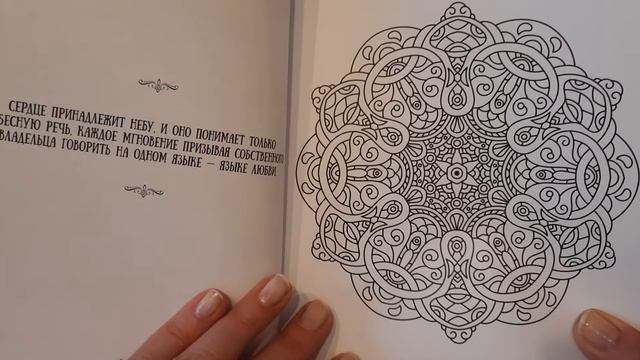 СЕРДЦЕ ПРИНАДЛЕЖИТ НЕБУ. И ОНО ПОНИМАЕТ ТОЛЬКО
БЕСНУЮ РЕЧЬ, КАЖДОЕ МГНОВЕНИЕ ПРИЗЫВАЯ СОБСТВЕННОГО
ВЛАДЕЛЬЦА ГОВОРИТЬ НА ОДНОМ ЯЗЫКЕ – ЯЗЫКЕ ЛЮБВИ.